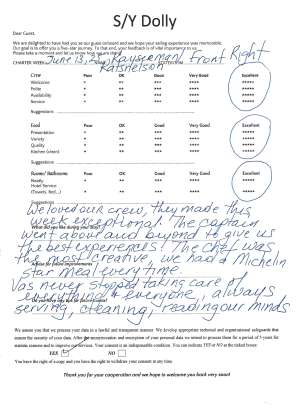 S/Y Dolly
Dear Guest,
We are delighted to have had you as our guest onboard and we hope your sailing experience was memorable.
Our goal is to offer you a five-star journey. To that end, your feedback is of vital importance to us.
Please take a moment and let us know how we are doing
CHARTER WEEK June 13, Kayserman/ Front Right
Katsnelson
Crew Poor OK Good Very Good Excellent
Welcome * ** *** **** *****
Polite * ** *** **** *****
Availability * ** *** **** *****
Service * ** *** **** *****
Suggestions
Food Poor OK Good Very Good Excellent
Presentation * ** *** **** *****
Variety * ** *** **** *****
Quality * ** *** **** *****
Kitchen (clean) * ** *** **** *****
Suggestions
Rooms/ Bathrooms Poor OK Good Very Good Excellent
Ready * ** *** **** *****
Hotel Service
(Towels, bed...) * ** *** **** *****
Suggestions
We loved our crew, they made this
week exceptional. The captain
What did you like during your
went about and buyond to give us
the best experiences! The chef was
the most creative, we had a Michelin
Advise for future improvements
star meal every time.
Vas never stopped taking care of
everything & everyone, always
serving, cleaning, reading our minds
We assure you that we process your data in a lawful and transparent manner. We develop appropriate technical and organizational safeguards that
ensure the security of your data. After the anonymization and encryption of your personal data we intend to process them for a period of 5 years for
statistic reasons and to improve our services. Your consent is an indispensable condition. You can indicate YES or NO in the ticked boxes:
YES NO
You have the right of a copy and you have the right to withdraw your consent at any time.
Thank you for your cooperation and we hope to welcome you back very soon!